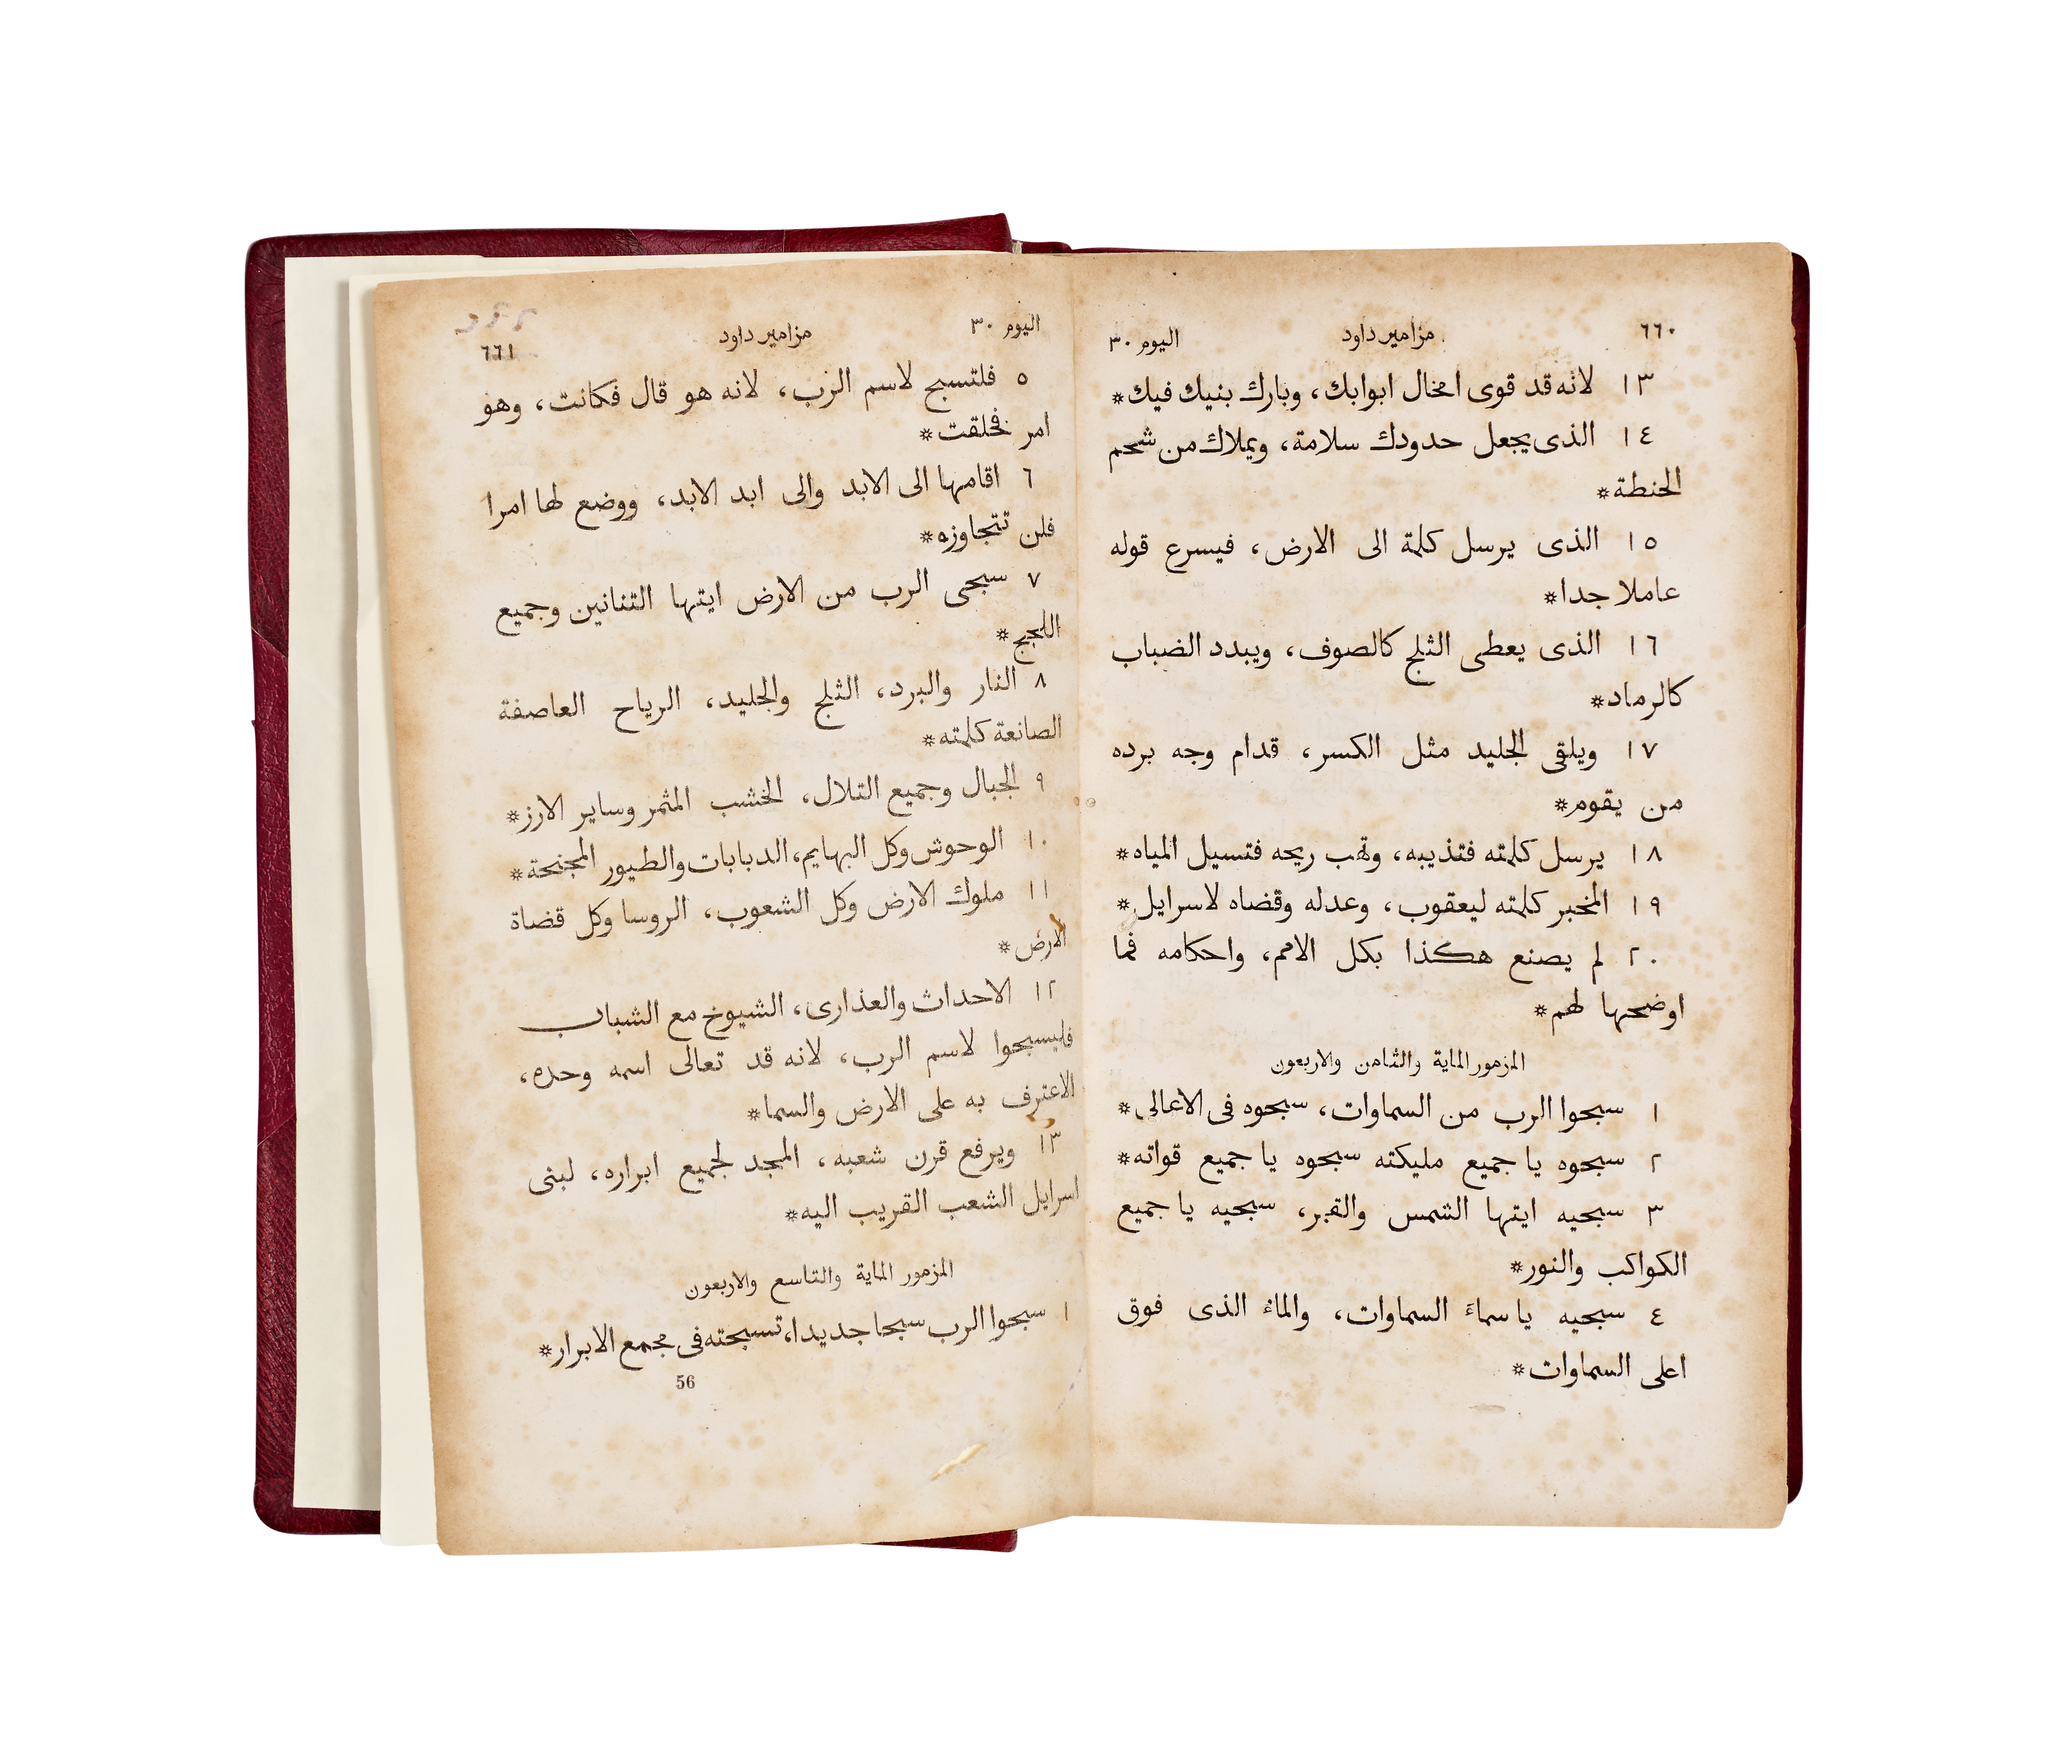 ٦٦٠ مزامير داود اليوم ٣٠
١٣ لانه قد قوى امخال ابوابك، وبارك بنيك فيك*
١٤ الذى يجعل حدودك سلامة، ويملاك من شحم
الحنطة*
١٥ الذى يرسل كلمة الى الارض، فيسرع قوله
عاملا جدا*
١٦ الذى يعطى الثلج كالصوف، ويبدد الضباب
كالرماد*
١٧ ويلقى الجليد مثل الكسر، قدام وجه برده
من يقوم*
١٨ يرسل كلمته فتذيبه، وتهب ريحه فتسيل المياه*
١٩ المخبر كلمته ليعقوب، وعدله وقضاه لاسرايل*
٢٠ لم يصنع هكذا بكل الامم، واحكامه فما
اوضحها لهم*
المزمور الماية والثامن والاربعون
١ سبحوا الرب من السماوات، سبحوه فى الاعالى*
٢ سبحوه يا جميع مليكته سبحوه يا جميع قواته*
٣ سبحيه ايتها الشمس والقمر، سبحيه يا جميع
الكواكب والنور*
٤ سبحيه يا سماء السماوات، والماء الذى فوق
اعلى السماوات*
اليوم ٣٠ مزامير داود ٦٦١
٥ فلتسبح لاسم الرب، لانه هو قال فكانت، وهو
امر فخلقت*
٦ اقامها الى الابد والى ابد الابد، ووضع لها امرا
فلن تتجاوزه*
٧ سبحى الرب من الارض ايتها التنانين وجميع
اللجج*
٨ النار والبرد، الثلج والجليد، الرياح العاصفة
الصانعة كلمته*
٩ الجبال وجميع التلال، الخشب المثمر وساير الارز*
١٠ الوحوش وكل البهايم، الدبابات والطيور المجنحة*
١١ ملوك الارض وكل الشعوب، الروسا وكل قضاة
الارض*
١٢ الاحداث والعذارى، الشيوخ مع الشباب
فليسبحوا لاسم الرب، لانه قد تعالى اسمه وحده،
الاعترف به على الارض والسما*
١٣ ويرفع قرن شعبه، المجد لجميع ابراره، لبنى
اسرايل الشعب القريب اليه*
المزمور الماية والتاسع والاربعون
١ سبحوا الرب سبحا جديدا، تسبحته فى مجمع الابرار*
56